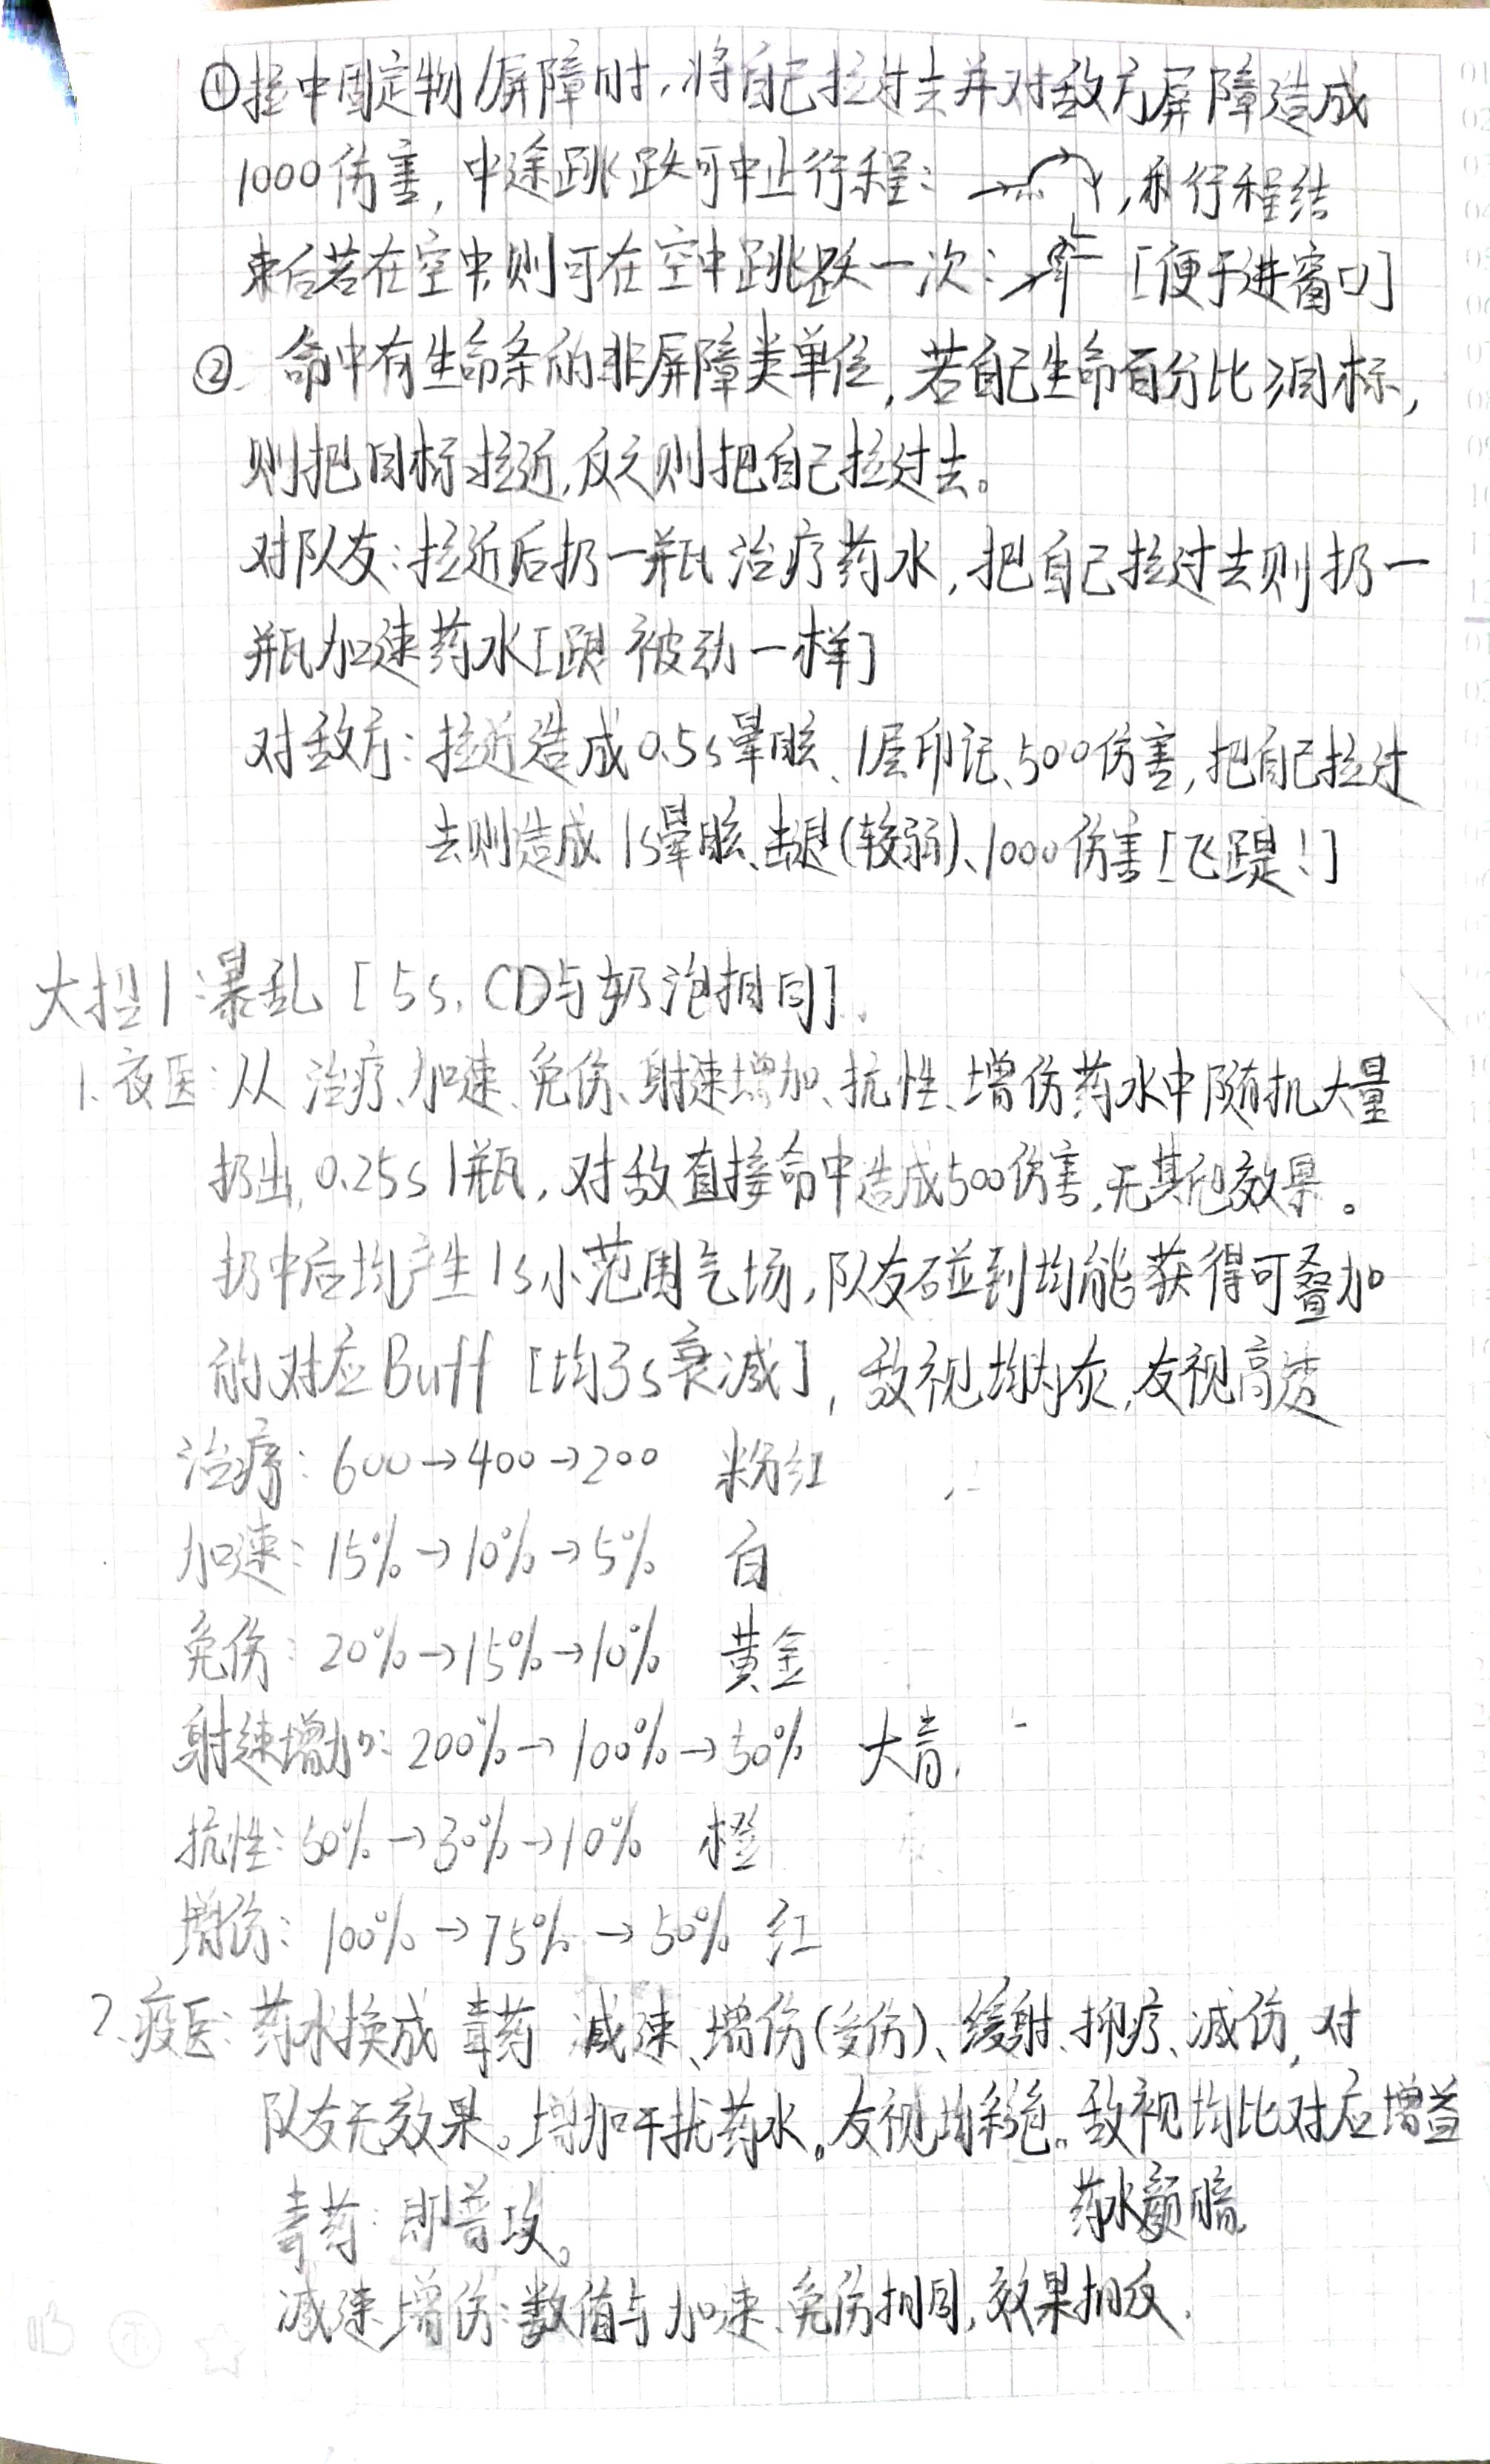 ①拉中固定物/屏障时,将自己拉过去并对敌方屏障造成
1000伤害,中途跳跃可中止行程: ,和行程结
束后若在空中,则可在空中跳跃一次: [便于进窗口]
② 命中有生命条的非屏障类单位,若自己生命百分比>目标,
则把目标拉近,反之则把自己拉过去。
对队友:拉近后扔一瓶治疗药水,把自己拉过去则扔一
瓶加速药水[跟被动一样]
对敌方:拉近造成0.5s晕眩、1层印记、500伤害,把自己拉过
去则造成1s晕眩、击退(较弱)、1000伤害[飞踶!]
大招1:暴乱[5s,CD与奶泡相同]
1、夜医:从治疗、加速、免伤、射速增加、抗性、增伤药水中随机大量
扔出,0.25s1瓶,对敌直接命中造成500伤害,无其他效果。
扔中后均产生1s小范围气场,队友碰到均能获得可叠加
的对应Buff[均3s衰减],敌视均为灰,友视高透
治疗:600→400→200 粉红
加速:15%→10%→5% 白
免伤:20%→15%→10% 黄金
射速增加:200%→100%→50% 大青
抗性:50%→30%→10% 橙
增伤:100%→75%→50% 红
2、疫医:药水换成毒药 减速、增伤(受伤)、缓射、抑疗、减伤,对
队友无效果。增加干扰药水。友视均彩色。敌视均比对应增益
药水颜暗。
毒药:即普攻。
减速、增伤:数值与加速、免伤相同,效果相反.